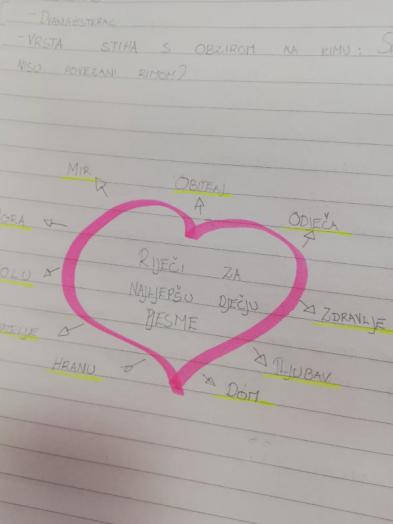 - DVANAESTERAC
- VRSTA STIHA S OBZIROM NA RIMU:
NISU POVEZANI RIMOM?
MIR
OBITELJ
ODJEĆA
RIJEČI ZA
NAJLJEPŠU DJEČJU
PJESME
ZDRAVLJE
LJUBAV
DOM
HRANU